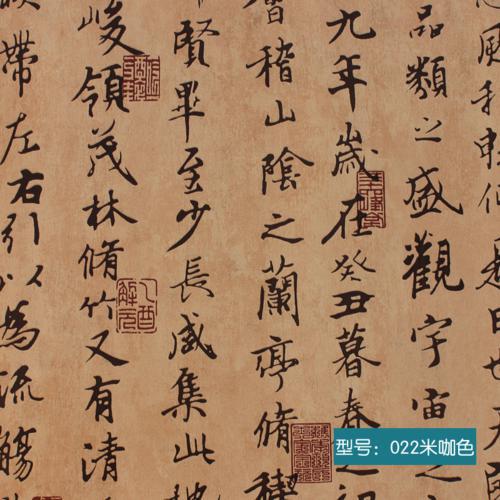 風和
日也天
品類之盛觀宇宙之
九年歲在癸丑暮春之初
會稽山陰之蘭亭脩禊
賢畢至少長咸集此地
峻領茂林脩竹又有清
帶左右引以為流觴
乙酉解元
型号：022米咖色